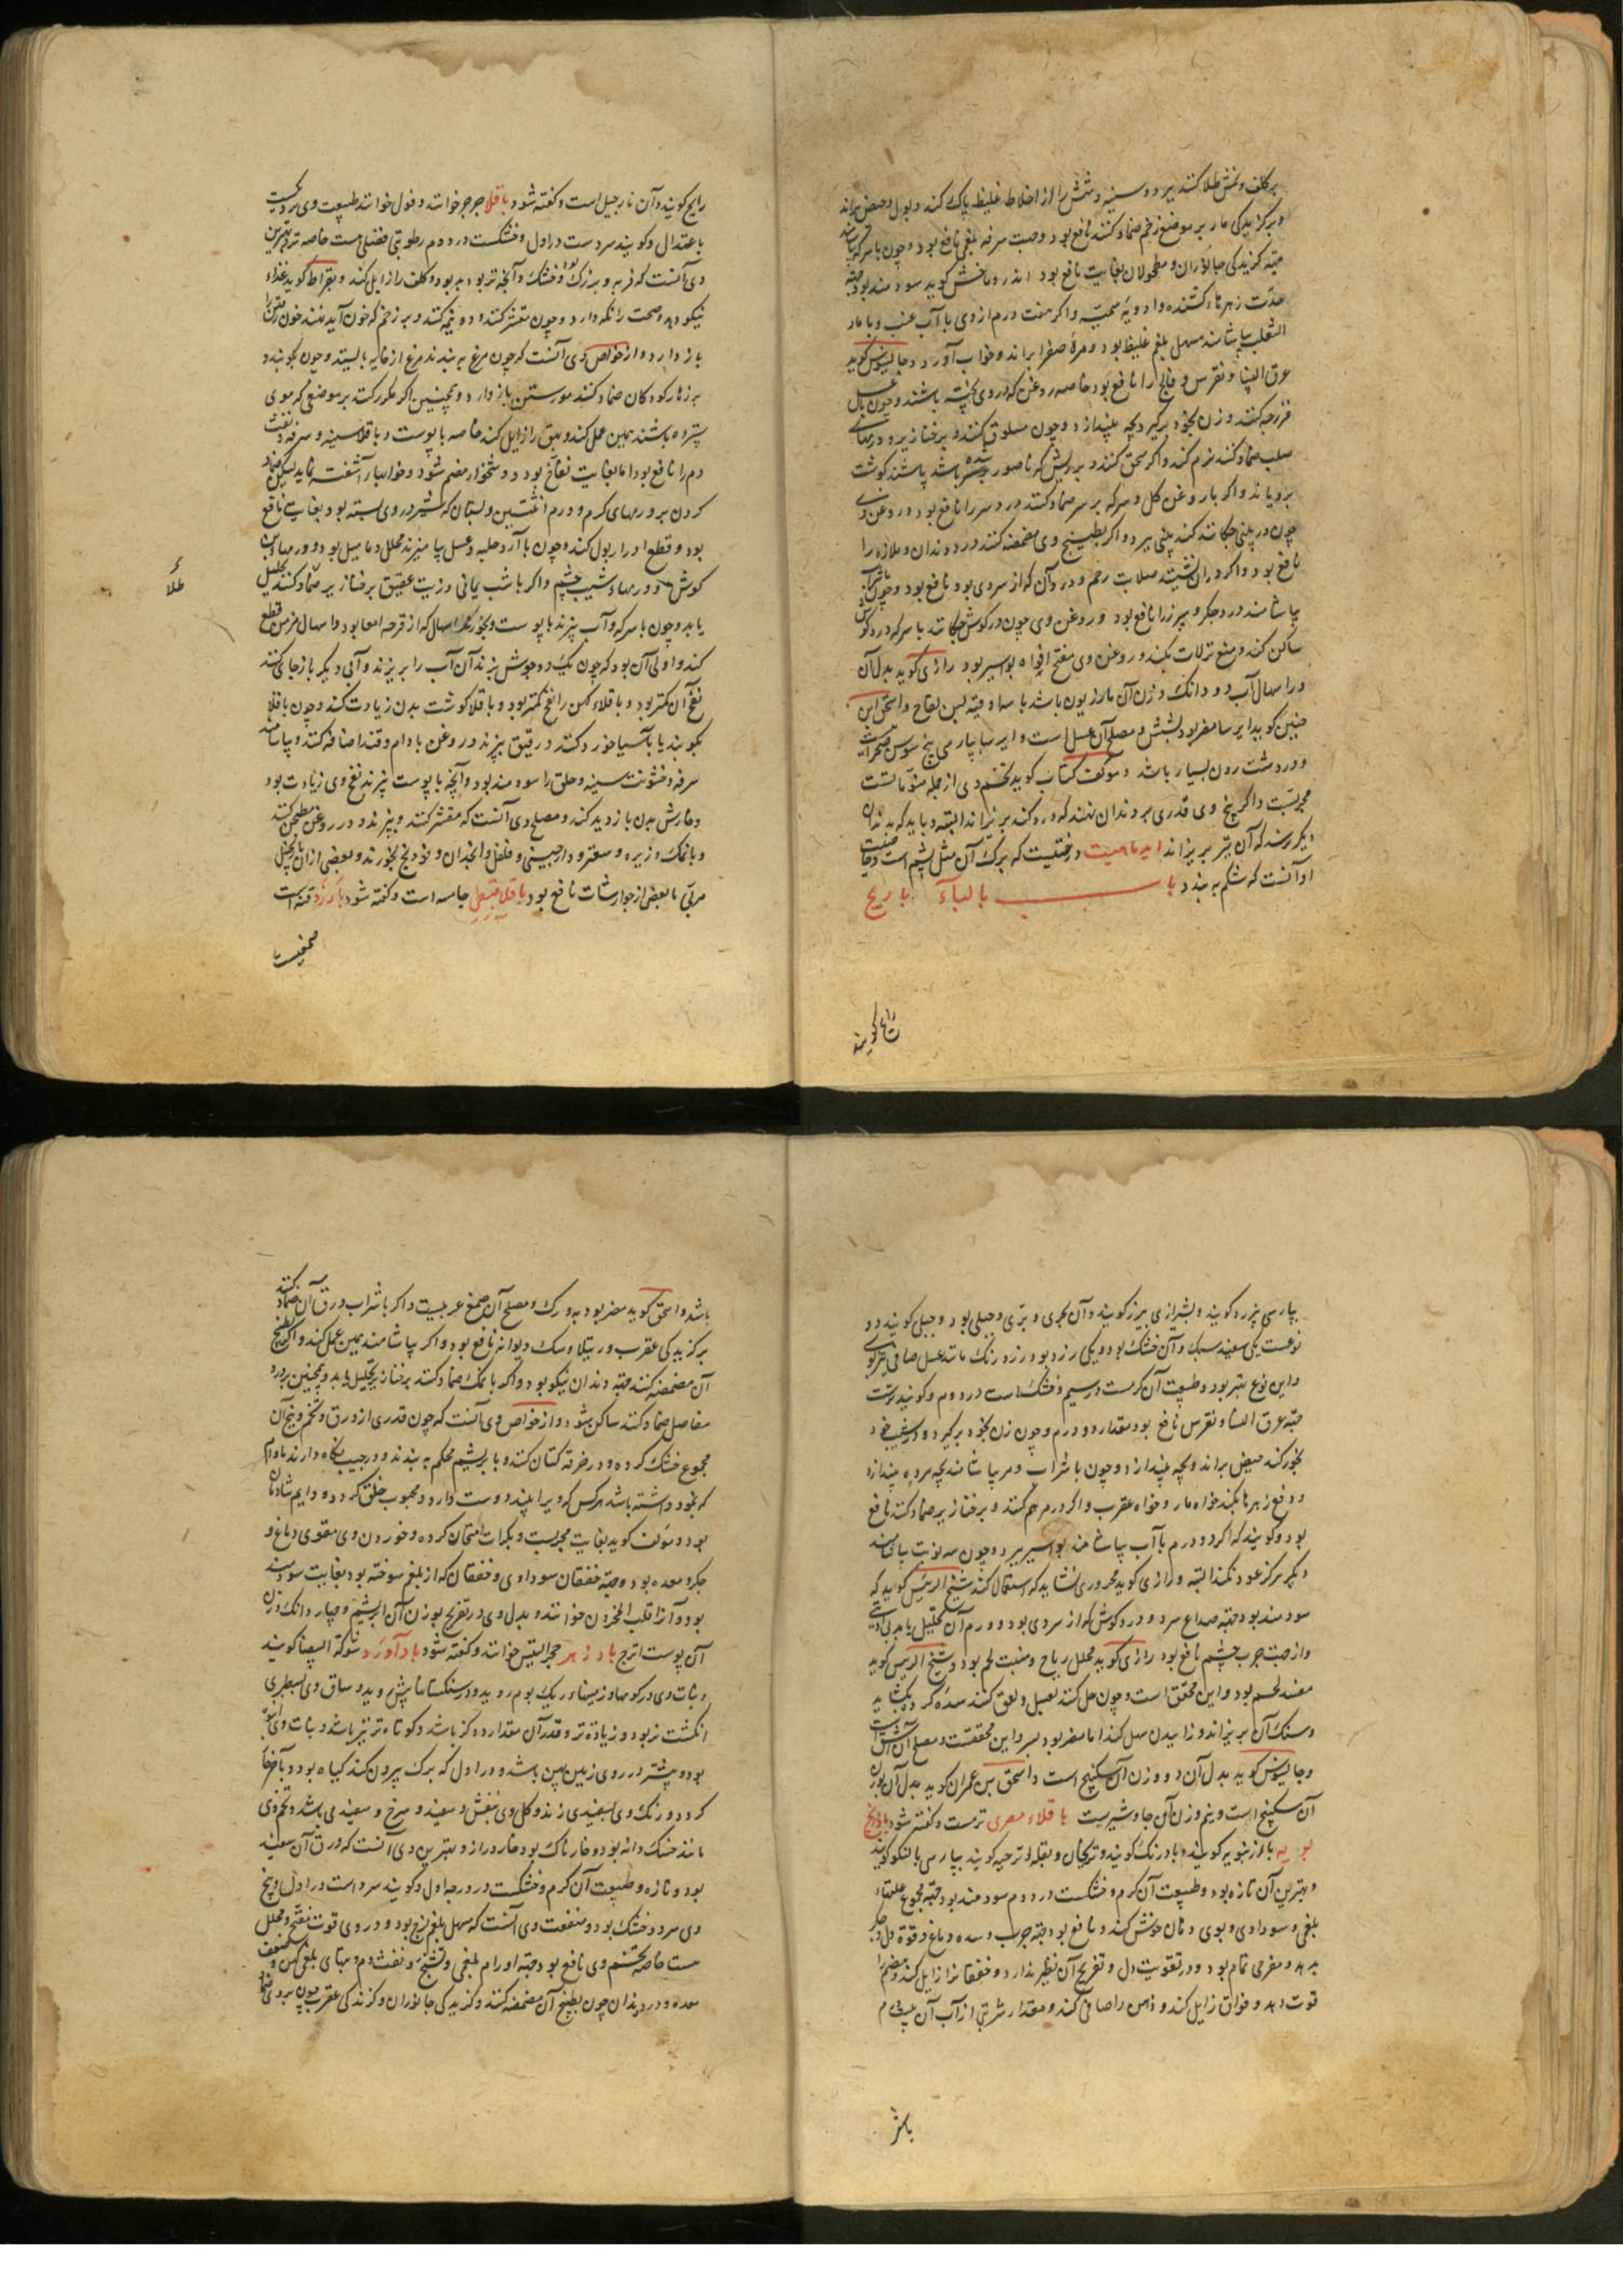 بر کلف و نمش طلا کنند ببرد و سینه و شش را از اخلاط غلیظ پاک کند و بول و حیض براند
و بر گزیدگی مار بر موضع زخم ضماد کنند نافع بود و جهت سرفه بلغمی نافع بود و چون با سرکه
جهة گزیدگی جانوران و مطحولان بغایت نافع بود
الثعلب بیاشامند مسهل بلغم غلیظ بود و مره صفرا براند و خواب آورد و جالینوس گوید
عرق النسا و نقرس و فالج را نافع بود خاصه روغن که در وی پخته باشند و چون با عسل
فرزجه کنند و زن بخود برگیرد بچه بیندازد و چون مسلوق کنند و بر خنازیر و ورمهای
صلب ضماد کنند نرم کند و اگر سحق کنند و بر ریش که ناصور شده باشد پاشند گوشت
برویاند و اگر با روغن گل و سرکه بر سر ضماد کنند درد سر را نافع بود و روغن وی
چون در بینی چکانند گند بینی ببرد و اگر بطبیخ وی مضمضه کنند درد دندان و ملازه را
نافع بود و اگر در آن نشینند صلابت رحم و درد آن که از سردی بود نافع بود و چون با شراب
بیاشامند درد جگر و سپرز را نافع بود و روغن وی چون در گوش چکانند با سرکه درد گوش
ساکن کند و منع نزلات بکند و روغن وی مفتح افواه بواسیر بود رازی گوید بدل آن
در اسهال آب دو دانگ وزن آن مازریون باشد با سه اوقیه لبن لقاح و اسحق ابن
حنین گوید ایرسا مضر بود بشش و مصلح آن عسل است و ایرسا بپارسی بیخ سوسن صحرائیست
و در دشت رون بسیار باشد و مؤلف کتاب گوید تخم وی از جمله منومات است
مجربست و اگر بیخ وی قدری بر دندان نهند که درد کند بریزاند البته و باید که بدندان
دیگر نرسد که آن نیز بریزاند ایدماهیت درختیست که برگ آن مثل پشم است و خاصیت
او آنست که شکم به بندد باب بالباء باریج
رایج گویند
رایج گویند و آن نارجیل است و گفته شود باقلا جرجر خوانند و فول خوانند طبیعت وی سردیست
باعتدال و گویند سردست در اول و خشکست در دوم رطوبتی فضلی هست خاصه تر و بهترین
وی آنست که فربه و بزرگ بود و خشک و آنچه تر بود بد بود و کلف را زایل کند و بقراط گوید غذاء
نیکو دهد و صحت را نگه دارد و چون مقشر کنند و دو نیمه کنند و بر زخم که خون آید نهند خون رفتن را
باز دارد و از خواص وی آنست که چون مرغ به بندند مرغ از خایه بایستد و چون بکوبند و
بر زهار کودکان ضماد کنند مو رستن باز دارد و همچنین اگر مکرر کنند بر موضعی که موی
سترده باشند همین عمل کند و بهق را زایل کند خاصه با پوست و باقلا سینه و سرفه و نفث
دم را نافع بود اما بغایت نفاخ بود و دشخوار هضم شود و خوابهاء آشفته نماید لیکن ضماد
کردن بر ورمهای گرم و ورم انثیین و پستان که شیر در وی بسته بود بغایت نافع
بود و قطع ادرار بول کند و چون با آرد حلبه و عسل بیامیزند محلل دمامیل بود و ورمهاء بن
گوش و ورمهاء شیب چشم و اگر با شب یمانی و زیت عتیق بر خنازیر ضماد کنند تحلیل
طلاء
یابد و چون با سرکه و آب بپزند با پوست و بخورند اسهال که از قرحه امعا بود و اسهال مزمن قطع
کند و اولی آن بود که چون یک دو جوش بزند آن آب را بریزند و آبی دیگر باز جای کنند
نفخ آن کمتر بود و باقلاء کهن را نفخ کمتر بود و باقلا گوشت بدن زیادت کند و چون باقلا
بکوبند یا بآسیا خورد کنند و رقیق بپزند و روغن بادام و قند اضافه کنند و بیاشامند
سرفه و خشونت سینه و حلق را سودمند بود و آنچه با پوست بپزند نفخ وی زیادت بود
و خارش بدن بازدید کند و مصلح وی آنست که مقشر کنند و بپزند و در روغن مطجن کنند
و با نمک و زیره و سعتر و دارچینی و فلفل و انجدان و فودنج بخورند و بعضی از آن با زنجبیل
مربی یا بعضی از جوارشات نافع بود باقلا قبطی جامسه است و گفته شود بارزد قنه است
صمغیست
بپارسی بیرزد گویند و بشیرازی بیرز گویند و آن بحری و بری و جبلی بود و جبلی گویند دو
نوعست یکی سفید سبک و آن خشک بود و یکی زرد بود زرد رنگ مانند عسل صافی تیزبوی
و این نوع بهتر بود و طبیعت آن گرمست در سیم و خشک است در دوم و گویند ترست
جهة عرق النسا و نقرس نافع بود مقدار دو درم و چون زن بخود برگیرد و در شیب خود
بخور کند حیض براند و بچه بیندازد و چون با شراب و مر بیاشامند بچه مرده بیندازد
و دفع زهرها بکند خواه مار و خواه عقرب و اگر درم هم کنند و بر خنازیر ضماد کنند نافع
بود و گویند که اگر دو درم با آب بیاشامند بواسیر ببرد و چون سه نوبت بیاشامند
دیگر هرگز عود نکند البته و رازی گوید محروری نشاید که استعمال کنند شیخ الرئیس گوید که
سودمند بود جهة صداع سرد و درد گوش که از سردی بود و ورم آن تحلیل یابد
و از جهت جرب چشم نافع بود رازی گوید محلل ریاح و منبت لحم بود و شیخ الرئیس گوید
مفسد لحم بود و این محقق است و چون حل کنند بعسل و لعق کنند سده گرده بگشاید
و سنگ آن بریزاند و زاییدن سهل کند اما مضر بود بسر و این محققست و مصلح آن
و جالینوس گوید بدل آن دو وزن آن سکبینج است و اسحق بن عمران گوید بدل آن بوزن
آن سکبینج است و نیم وزن آن جاوشیرست باقلاء مصری ترمست و گفته شود بادرنج
بویه بادرنبویه گویند و بادرنگ گویند و تریجان و بقله اترجیه گویند بپارسی بالنکو گویند
و بهترین آن تازه بود و طبیعت آن گرم و خشکست در دوم سودمند بود جهة مجموع علتهاء
بلغمی و سوداوی و بوی دهان خوش کند و نافع بود جهة جرب و سده دماغ و قوة دل و جگر
بدهد و مفرحی تمام بود و در تقویت دل و تفریح آن نظیر ندارد و خفقانرا زایل کند و هضم را
قوت دهد و فواق زایل کند و ذهن را صافی کند و مقدار شربتی از آب آن
باشد
باشد و اسحق گوید مضر بود به ورک و مصلح آن صمغ عربیست و اگر با شراب ورق آن ضماد کنند
بر گزیدگی عقرب و رتیلا و سگ دیوانه نافع بود و اگر بیاشامند همین عمل کند و اگر بطبیخ
آن مضمضه کنند جهة دندان نیکو بود و اگر با نمک ضماد کنند بر خنازیر تحلیل یابد و همچنین بر درد
مفاصل ضماد کنند ساکن شود و از خواص وی آنست که چون قدری از ورق و تخم و بیخ آن
مجموع خشک کرده و در خرقه کتان کنند و با بریشم محکم به بندند و در جیب نگاه دارند مادام
که بخود داشته باشد هر کس که ویرا بیند دوست دارد و محبوب خلق گردد و دایم شادمان
بود و مؤلف گوید بغایت مجربست و بکرات امتحان کرده و خوردن وی مقوی دماغ و
جگر و معده بود و جهة خفقان سوداوی و خفقان که از بلغم سوخته بود بغایت سودمند
بود و آنرا قلب المحزون خوانند و بدل وی در تفریح بوزن آن ابریشم و چهار دانگ وزن
آن پوست اترج بادزهر حجر التیس خوانند و گفته شود بادآورد شوکة البیضا گویند
و نبات وی در کوهها و زمینهاء ریگ بوم روید و در سنگستانها بیش روید و ساق وی بسطبری
انگشت نر بود و زیاده تر و قدر آن مقدار دو گز باشد و کوتاه تر نیز باشد و نبات وی
بود و بیشتر در روی زمین پهن باشد و در اول که برگ بیرون کند گیاه بود و بآخر خار
گردد و رنگ وی بسفیدی زند و گل وی بنفش و سفید و سرخ و سفید می باشد و تخم وی
مانند خسک دانه بود و خارناک بود و خار دراز و بهترین وی آنست که ورق آن سفید
بود و تازه و طبیعت آن گرم و خشکست در درجه اول و گویند سرد است در اول و بیخ
وی سرد و خشک بود و منفعت وی آنست که مسهل بلغم لزج بود و در وی قوت مفتح و محلل
هست خاصه تخم وی نافع بود جهة اورام بلغمی و تشنج و نفث دم و تبهای بلغمی کهن و ضعف
معده و درد دندان چون بطبیخ آن مضمضه کنند و گزیدگی جانوران و گزندگی عقرب چون بر وی ضماد